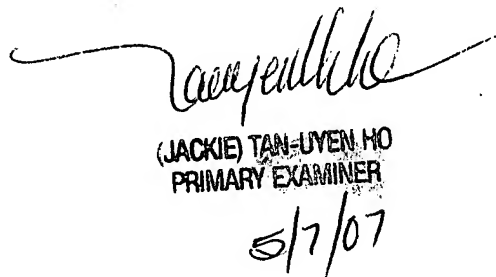 (JACKIE) TAN-UYEN HO
PRIMARY EXAMINER
5/7/07